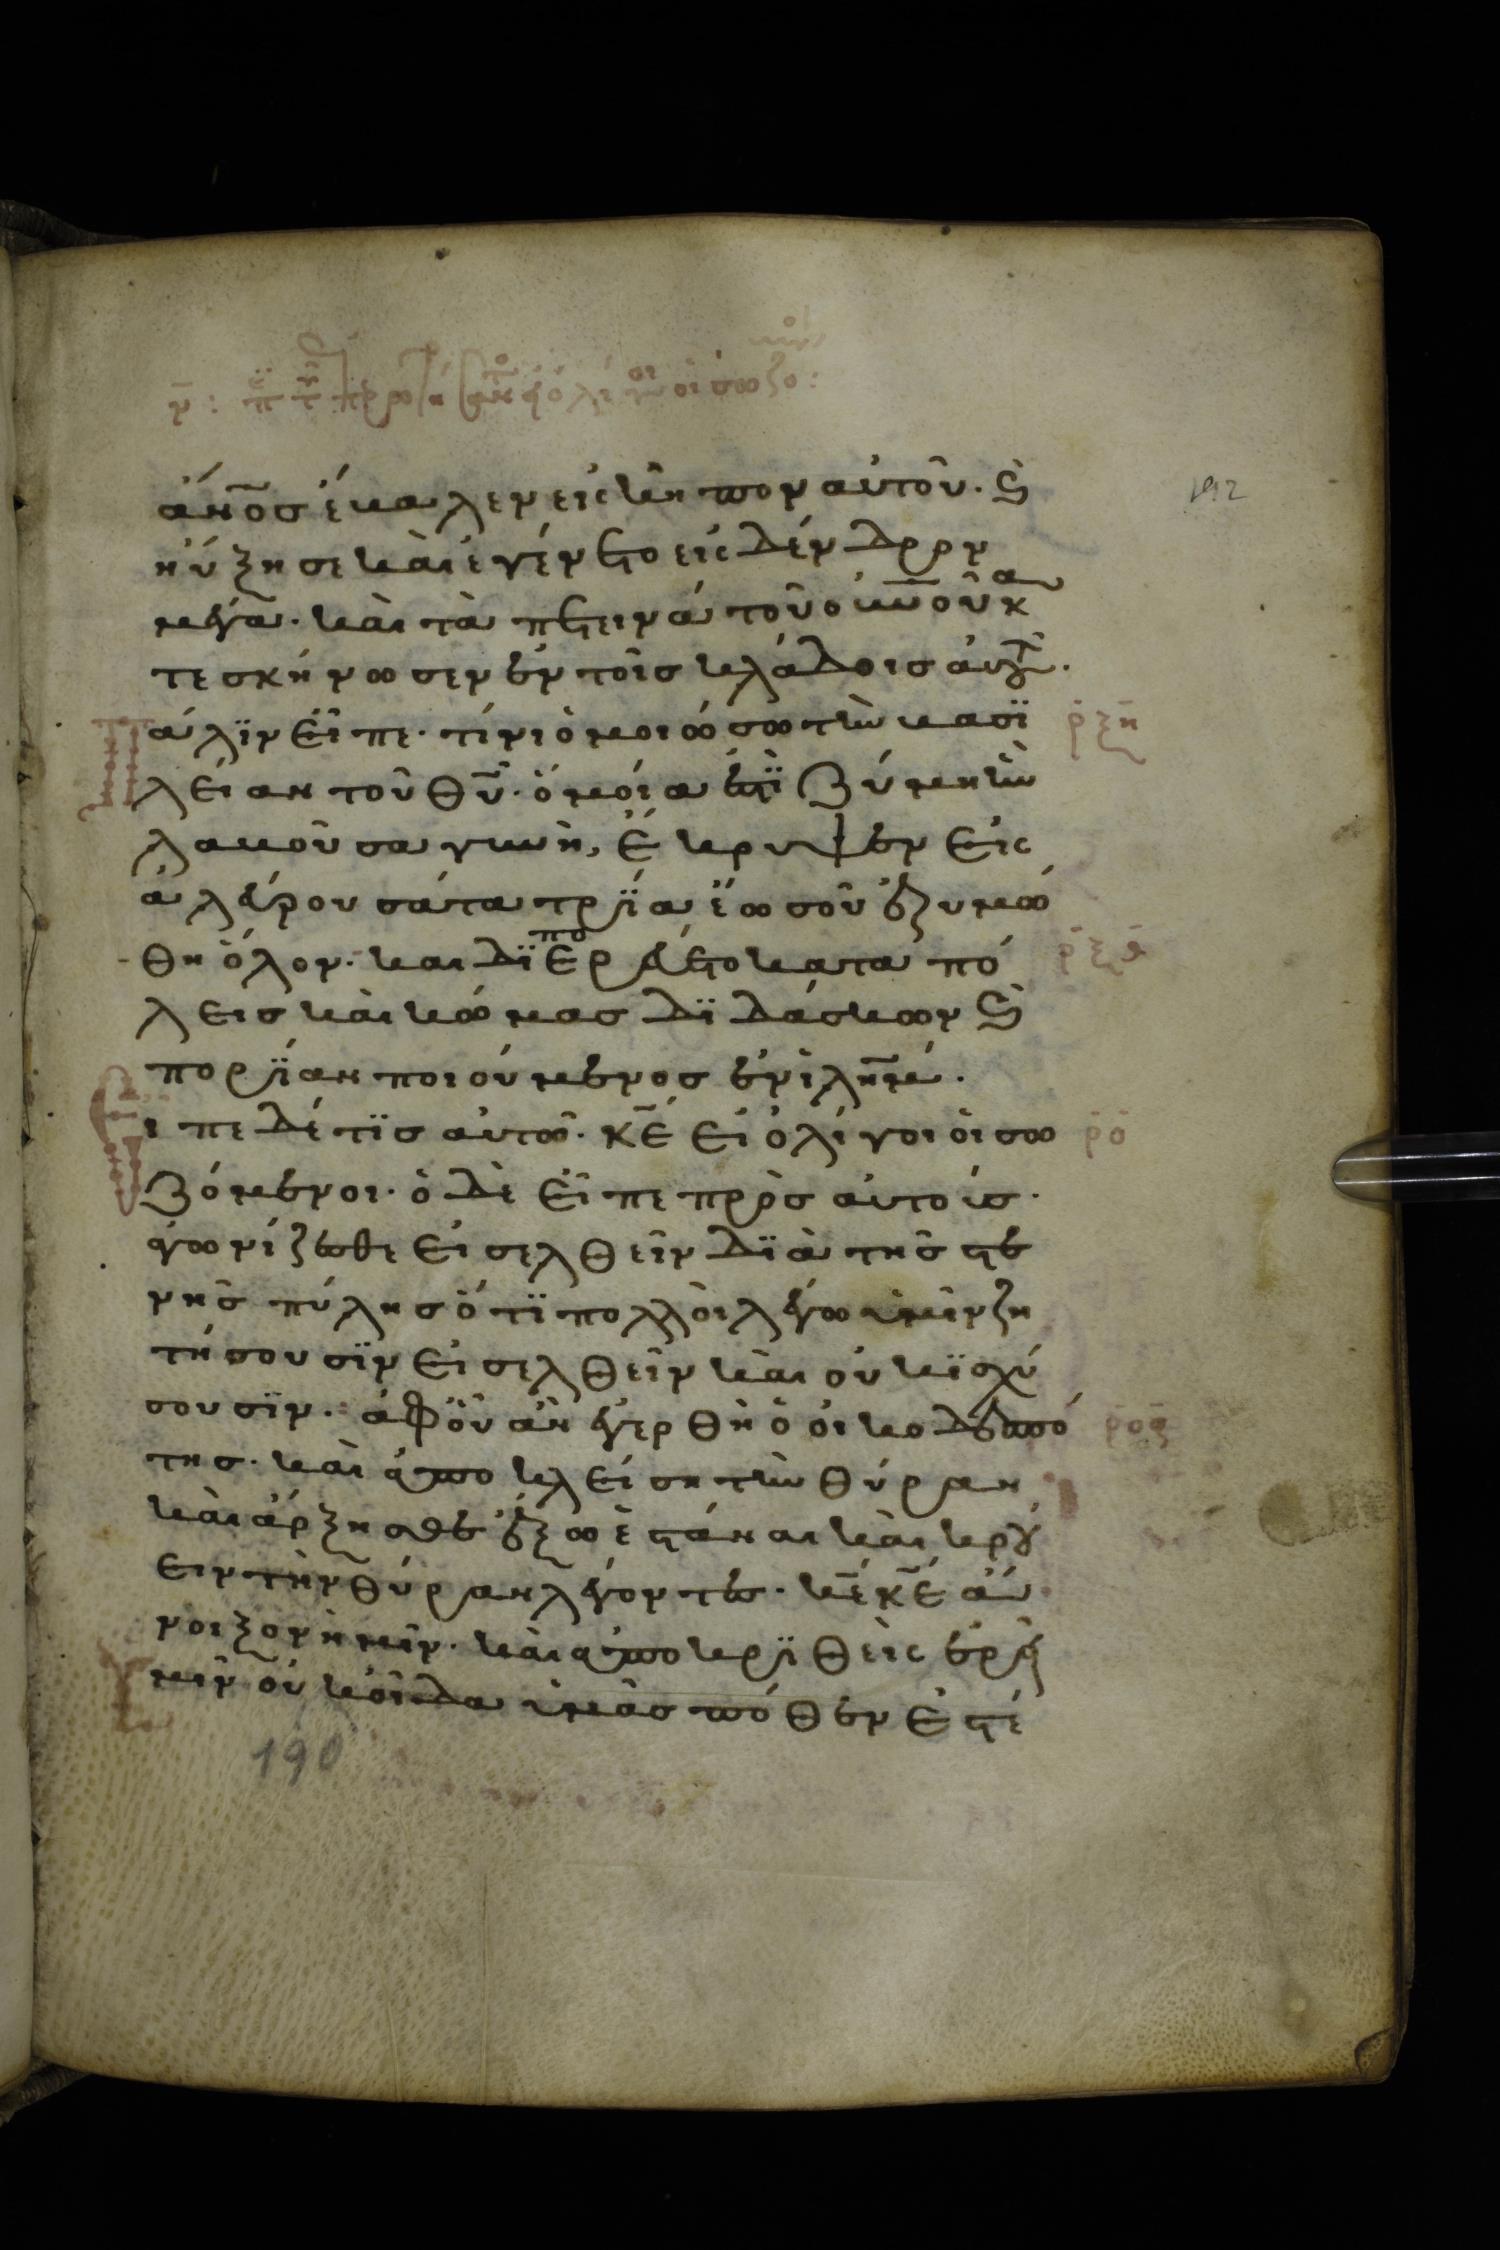 ν̅: π τ ἐρωτή εἰ ὀλίγοι οἱ σωζο:
ἄν̅ο̅σ̅ ἔβαλεν εἰς κῆπον αὐτοῦ. ϗ
ηὔξησε καὶ ἐγένετο εἰς δένδρον
μέγα. καὶ τὰ πετεινά τοῦ οὐ̅ν̅οῦ κα
τεσκήνωσεν ἐν τοῖσ κλάδοισ αὐτοῦ.
Πάλϊν εἶπε. τίνι ὁμοιώσω τὴν βασϊ
λείαν τοῦ θ̅υ̅. ὁμοία ἐστὶ ζύμη ἣν
λαβοῦσα γυνὴ, ἔκρυψεν εἰς
ἀλεύρου σάτα τρϊία ἕωσ οὗ ἐζυμώ
θη ὅλον. και δϊεπορεύετο κατα πό
λεισ καὶ κώμασ δϊδάσκων ϗ
πορϊίαν ποιούμενοσ ἐν ἰ̅λ̅η̅μ̅.
Εἶπε δέ τϊσ αὐτῶ. κ̅ε̅ εἰ ὀλίγοι οἱ σω
ζόμενοι. ὁ δὲ εἶπε πρὸσ αὐτούσ.
ἀγωνίζεσθε εἰσελθεῖν δϊὰ τῆσ στε
νῆσ πύλησ ὅτϊ πολλοὶ λέγω ὑμῖν ζη
τήσουσϊν εἰσελθεῖν καὶ οὐκ ϊσχύ
σουσϊν. ἀφ' οὗ ἂν ἐγερθῆ ὁ οἰκοδεσπό
τησ. καὶ ἀποκλείση τὴν θύραν
καὶ ἄρξησθε ἔξω ἑστάναι καὶ κρού
ειν τὴν θύραν λέγοντεσ. κ̅ε̅ κ̅ε̅ ἄ
νοιξον ἡμῖν. καὶ ἀποκρϊθεὶς ἐρεῖ
ὑμῖν οὐκ οἶδα ὑμᾶσ πόθεν ἐστέ
ρξη
ρξθ
ρο
ροα
192
190